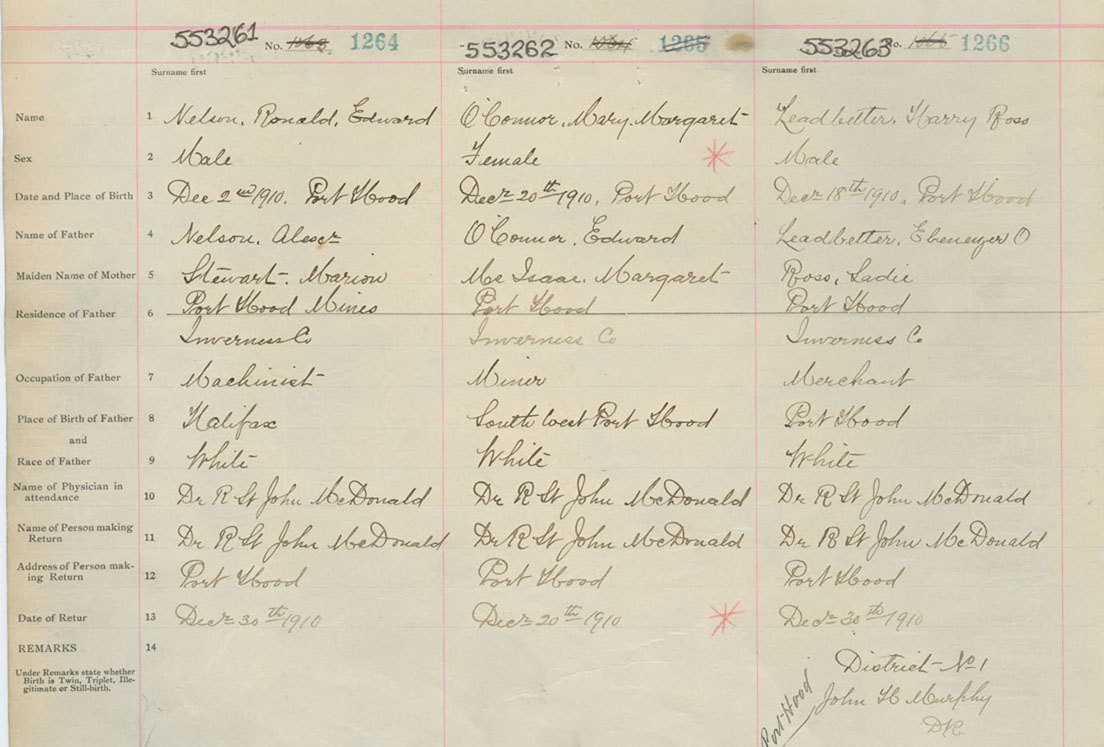 553261 No. 1264 553262 No. 1265 553263 No. 1266
Surname first Surname first Surname first
Name 1 Nelson, Ronald, Edward O'Connor, Mary, Margaret Leadbetter, Harry Ross
Sex 2 Male Female Male
Date and Place of Birth 3 Dec 2nd 1910. Port Hood Decr 20th 1910, Port Hood Decr 18th 1910, Port Hood
Name of Father 4 Nelson, Alexr O'Connor, Edward Leadbetter, Ebenezer O
Maiden Name of Mother 5 Stewart, Marion McIsaac, Margaret Ross, Sadie
Port Hood Mines Port Hood Port Hood
Residence of Father 6
Inverness Co Inverness Co Inverness Co
Occupation of Father 7 Machinist Miner Merchant
Place of Birth of Father 8 Halifax South West Port Hood Port Hood
and
Race of Father 9 White White White
Name of Physician in
attendance 10 Dr R St John McDonald Dr R St John McDonald Dr R St John McDonald
Name of Person making
Return 11 Dr R St John McDonald Dr R St John McDonald Dr R St John McDonald
Address of Person mak-
ing Return 12 Port Hood Port Hood Port Hood
Date of Retur 13 Decr 30th 1910 Decr 20th 1910 Decr 30th 1910
REMARKS 14
Under Remarks state whether
Birth is Twin, Triplet, Ille-
gitimate or Still-birth.
District No 1
John H Murphy
DR.
Port Hood